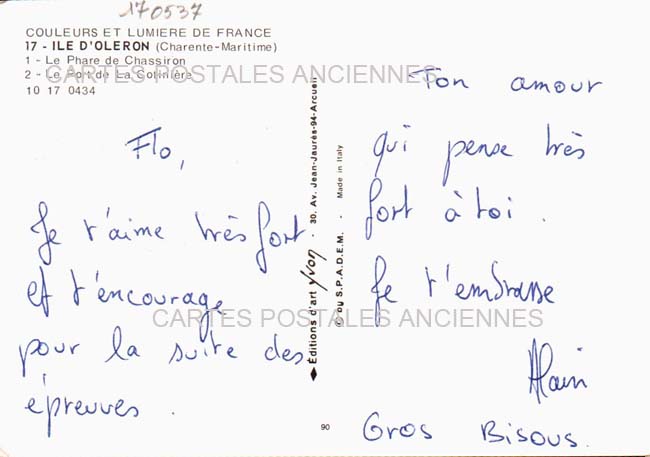 170537
COULEURS ET LUMIERE DE FRANCE
17 - ILE D'OLERON (Charente-Maritime)
1 - Le Phare de Chassiron
2 - Le Port de La Cotinière
10 17 0434
CARTES POSTALES ANCIENNES
Flo,
Je t'aime très fort
et t'encourage
pour la suite des
épreuves.
Éditions d'art Yvon - 30, Av. Jean-Jaurès-94-Arcueil
© by S.P.A.D.E.M. - Made in Italy
90
Ton amour
qui pense très
fort à toi.
Je t'embrasse
CARTES POSTALES ANCIENNES
Alain
Gros Bisous.